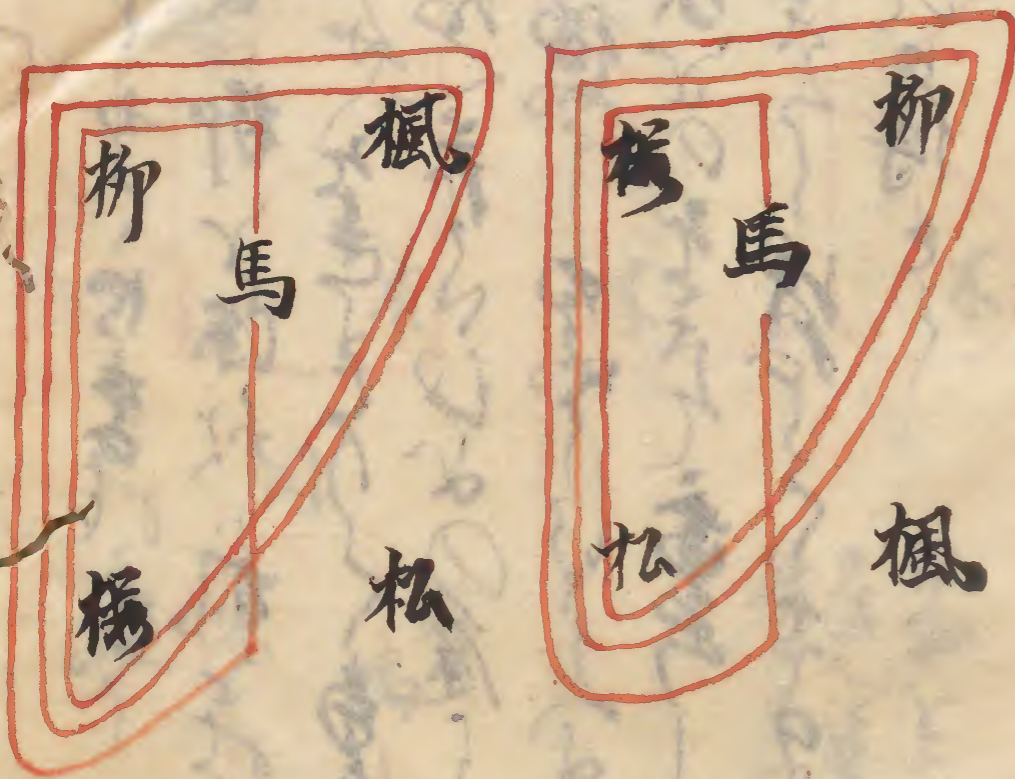 柳
桜
馬
松
楓
楓
柳
馬
桜
松